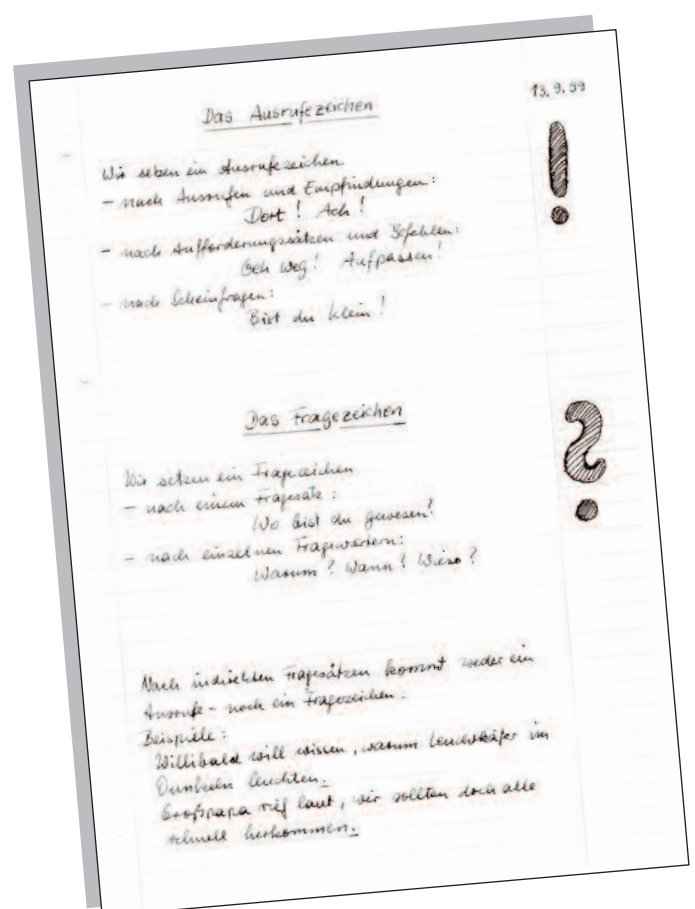 13.9.99
Das Ausrufezeichen
Wir setzen ein Ausrufezeichen
– nach Ausrufen und Empfindungen:
Dort! Ach!
– nach Aufforderungssätzen und Befehlen:
Geh weg! Aufpassen!
– nach Scheinfragen:
Bist du klein!
Das Fragezeichen
Wir setzen ein Fragezeichen
– nach einem Fragesatz:
Wo bist du gewesen?
– nach einzelnen Fragewörtern:
Warum? Wann? Wieso?
Nach indirekten Fragesätzen kommt weder ein
Ausrufe- noch ein Fragezeichen.
Beispiele:
Willibald will wissen, warum Leuchtkäfer im
Dunkeln leuchten.
Großpapa rief laut, wir sollten doch alle
schnell herkommen.